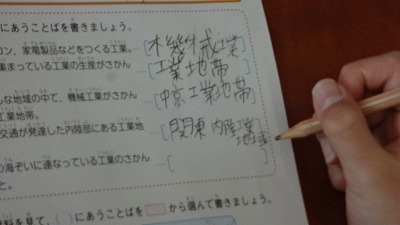 にあうことばを書きましょう。
コン、家電製品などをつくる工業。
[木幾械工業]
集まっている工業の生産がさかん
[工業地帯]
んな地域の中で、機械工業がさかん
工業地帯。
[中京工業地帯]
交通が発達した内陸部にある工業地
[関東内陸工業地域]
の海ぞいに連なっている工業のさかん
と。
[
料を見て、( )にあうことばを から選んで書きましょう。